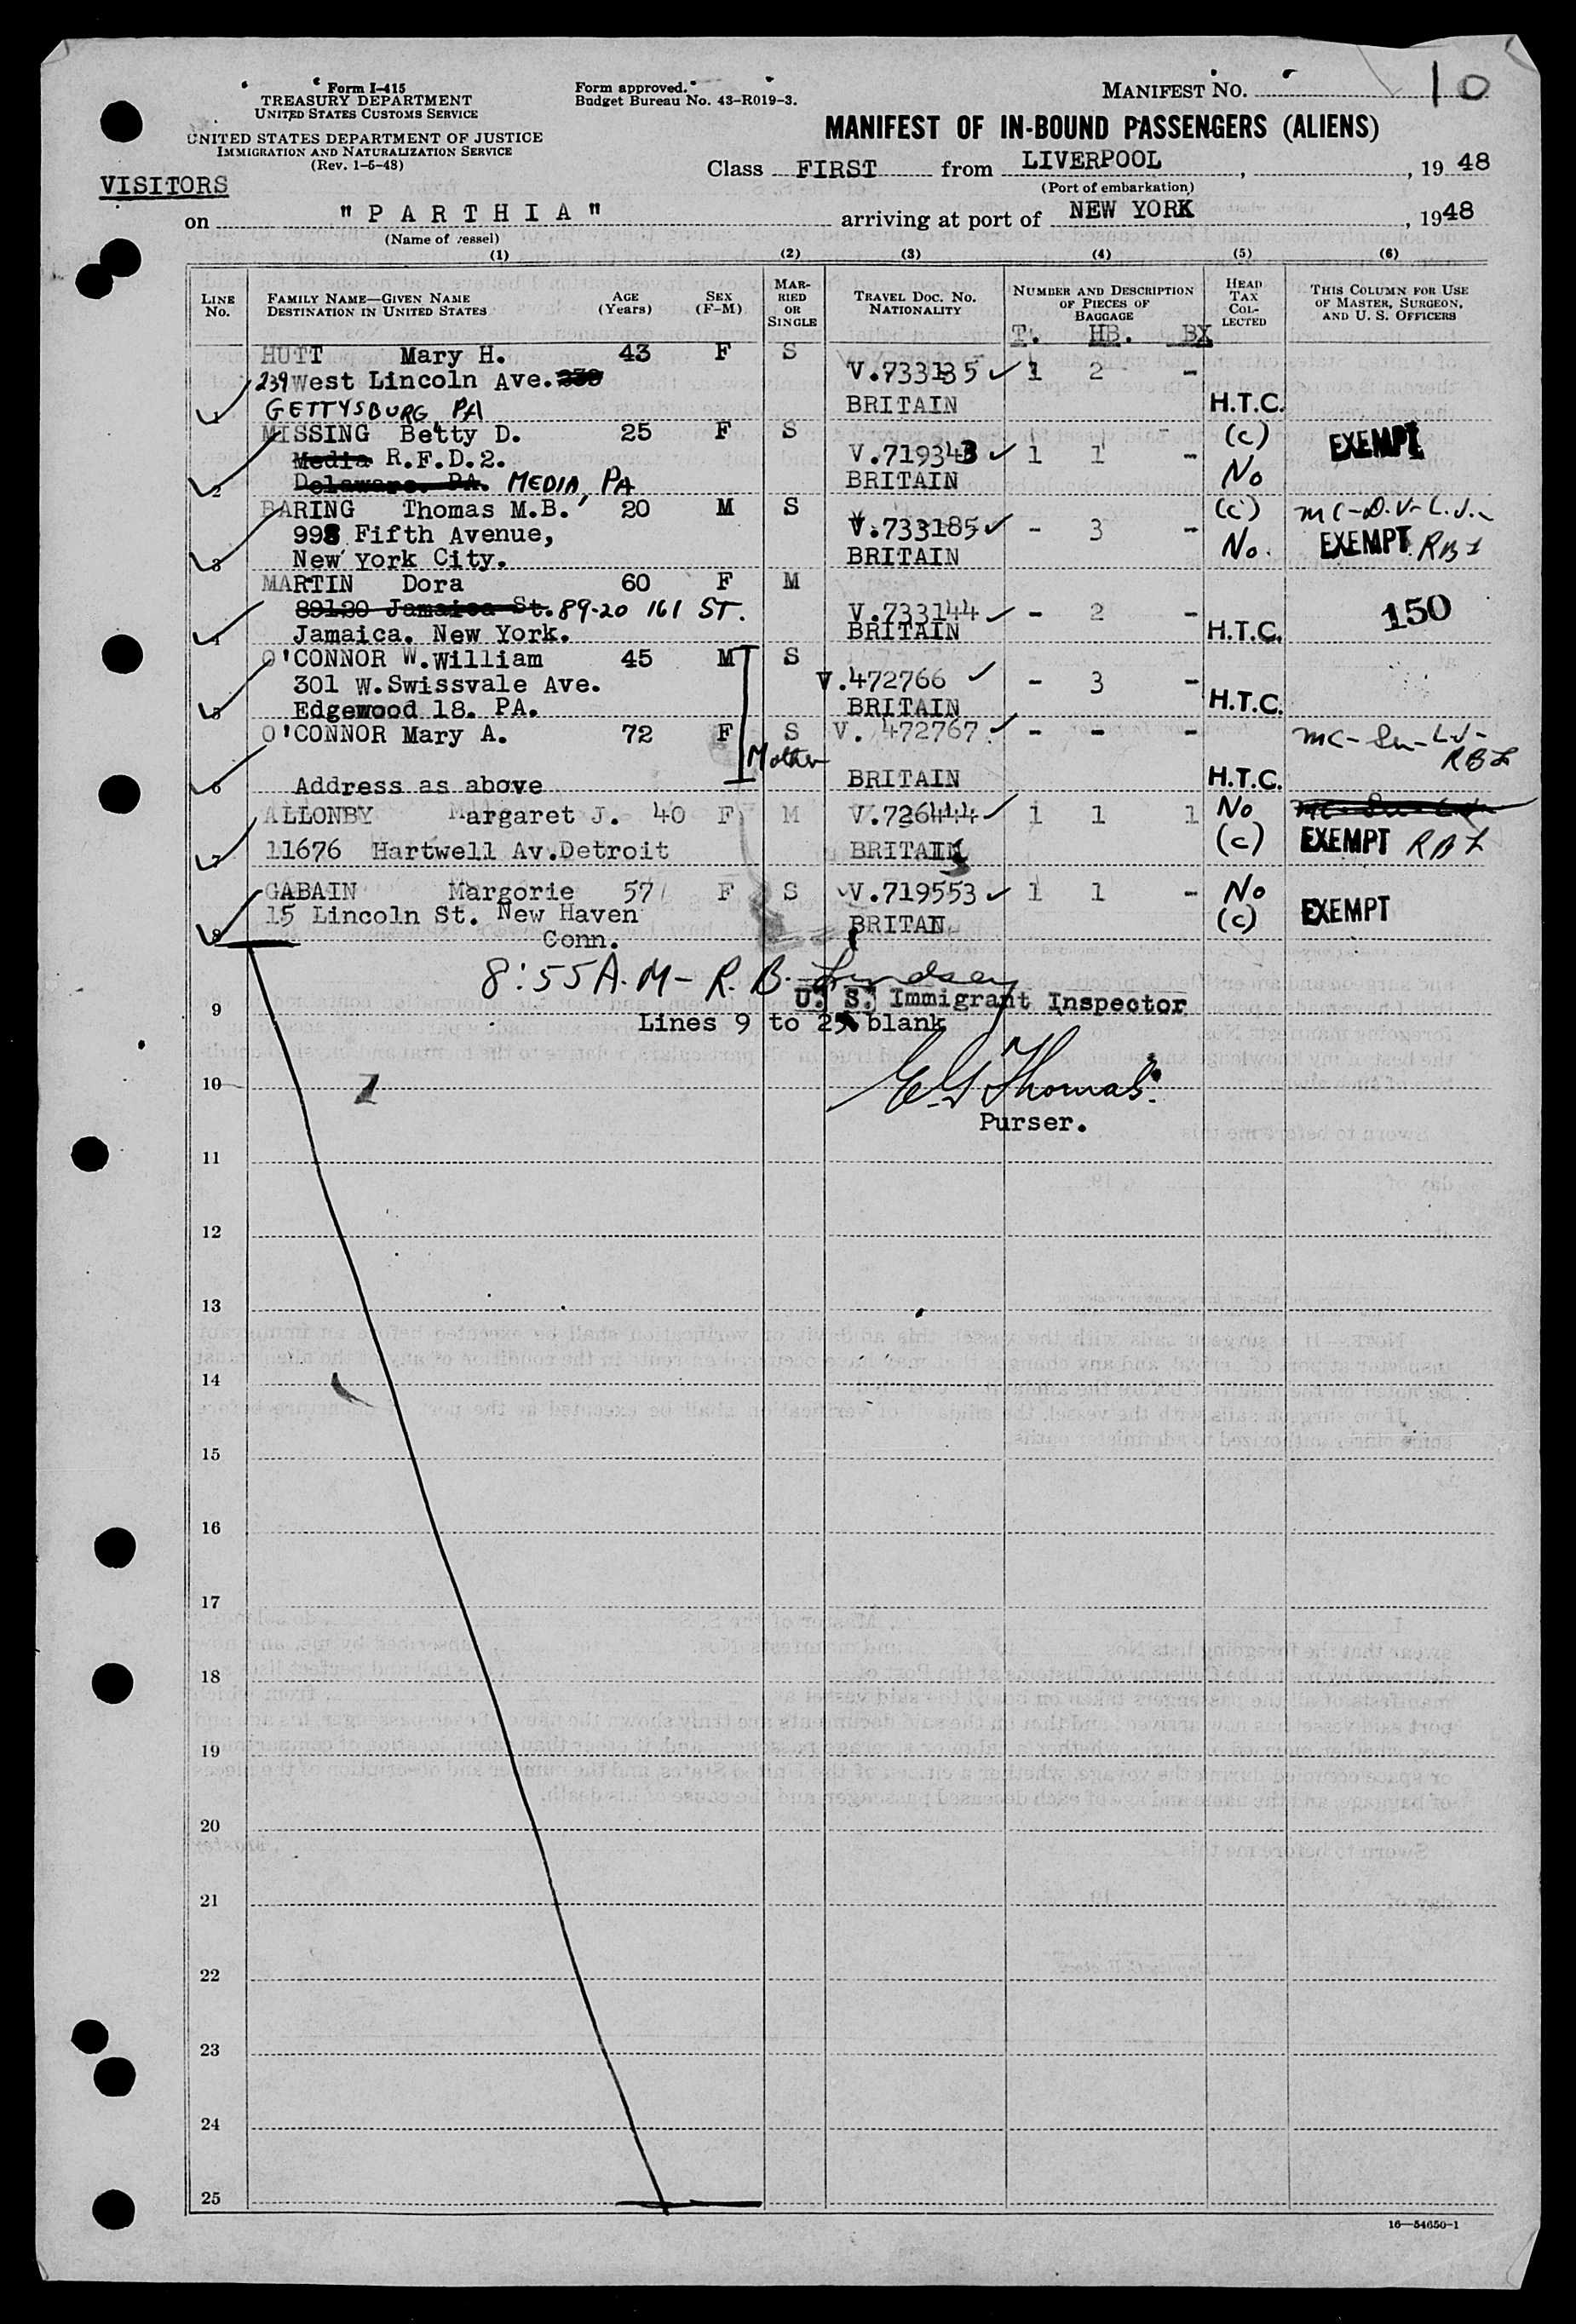 Form I-415
TREASURY DEPARTMENT
UNITED STATES CUSTOMS SERVICE
UNITED STATES DEPARTMENT OF JUSTICE
IMMIGRATION AND NATURALIZATION SERVICE
(Rev. 1-5-48)
Form approved.
Budget Bureau No. 43-R019-3.
MANIFEST NO. 10
MANIFEST OF IN-BOUND PASSENGERS (ALIENS)
VISITORS
Class FIRST from LIVERPOOL, 1948
(Port of embarkation)
on "PARTHIA" arriving at port of NEW YORK, 1948
(Name of vessel)
(1) (2) (3) (4) (5) (6)
LINE NO. FAMILY NAME—GIVEN NAME DESTINATION IN UNITED STATES AGE (Years) SEX (F-M) MARRIED OR SINGLE TRAVEL DOC. NO. NATIONALITY NUMBER AND DESCRIPTION OF PIECES OF BAGGAGE HEAD TAX COLLECTED THIS COLUMN FOR USE OF MASTER, SURGEON, AND U. S. OFFICERS
T. HB. BX
HUTT Mary H. 43 F S
239 West Lincoln Ave. V.733135 1 2 -
1 GETTYSBURG, PA BRITAIN H.T.C.
MISSING Betty D. 25 F S (c) EXEMPT
Media R.F.D.2. V.719343 1 1 -
2 Delaware. PA. MEDIA, PA BRITAIN No
BARING Thomas M.B. 20 M S (c) MC-D.V-L.J.
998 Fifth Avenue, V.733185 - 3 - No. EXEMPT RBL
3 New York City. BRITAIN
MARTIN Dora 60 F M
89120 Jamaica St. 89-20 161 ST. V.733144 - 2 - 150
4 Jamaica. New York. BRITAIN H.T.C.
O'CONNOR W.William 45 M S
301 W.Swissvale Ave. V.472766 - 3 -
5 Edgewood 18. PA. BRITAIN H.T.C.
O'CONNOR Mary A. 72 F S V. 472767 - - - MC-Sn-L.J-
Mother RBL
6 Address as above BRITAIN H.T.C.
ALLONBY Margaret J. 40 F M V.726444 1 1 1 No
7 11676 Hartwell Av.Detroit BRITAIN (c) EXEMPT RBL
GABAIN Margorie 57 F S V.719553 1 1 - No EXEMPT
15 Lincoln St. New Haven BRITAN (c)
8 Conn.
8:55 A.M - R. B. Lindsey
9 U. S. Immigrant Inspector
Lines 9 to 25 blank
10 E G Thomas.
Purser.
11
12
13
14
15
16
17
18
19
20
21
22
23
24
25
16—54650-1